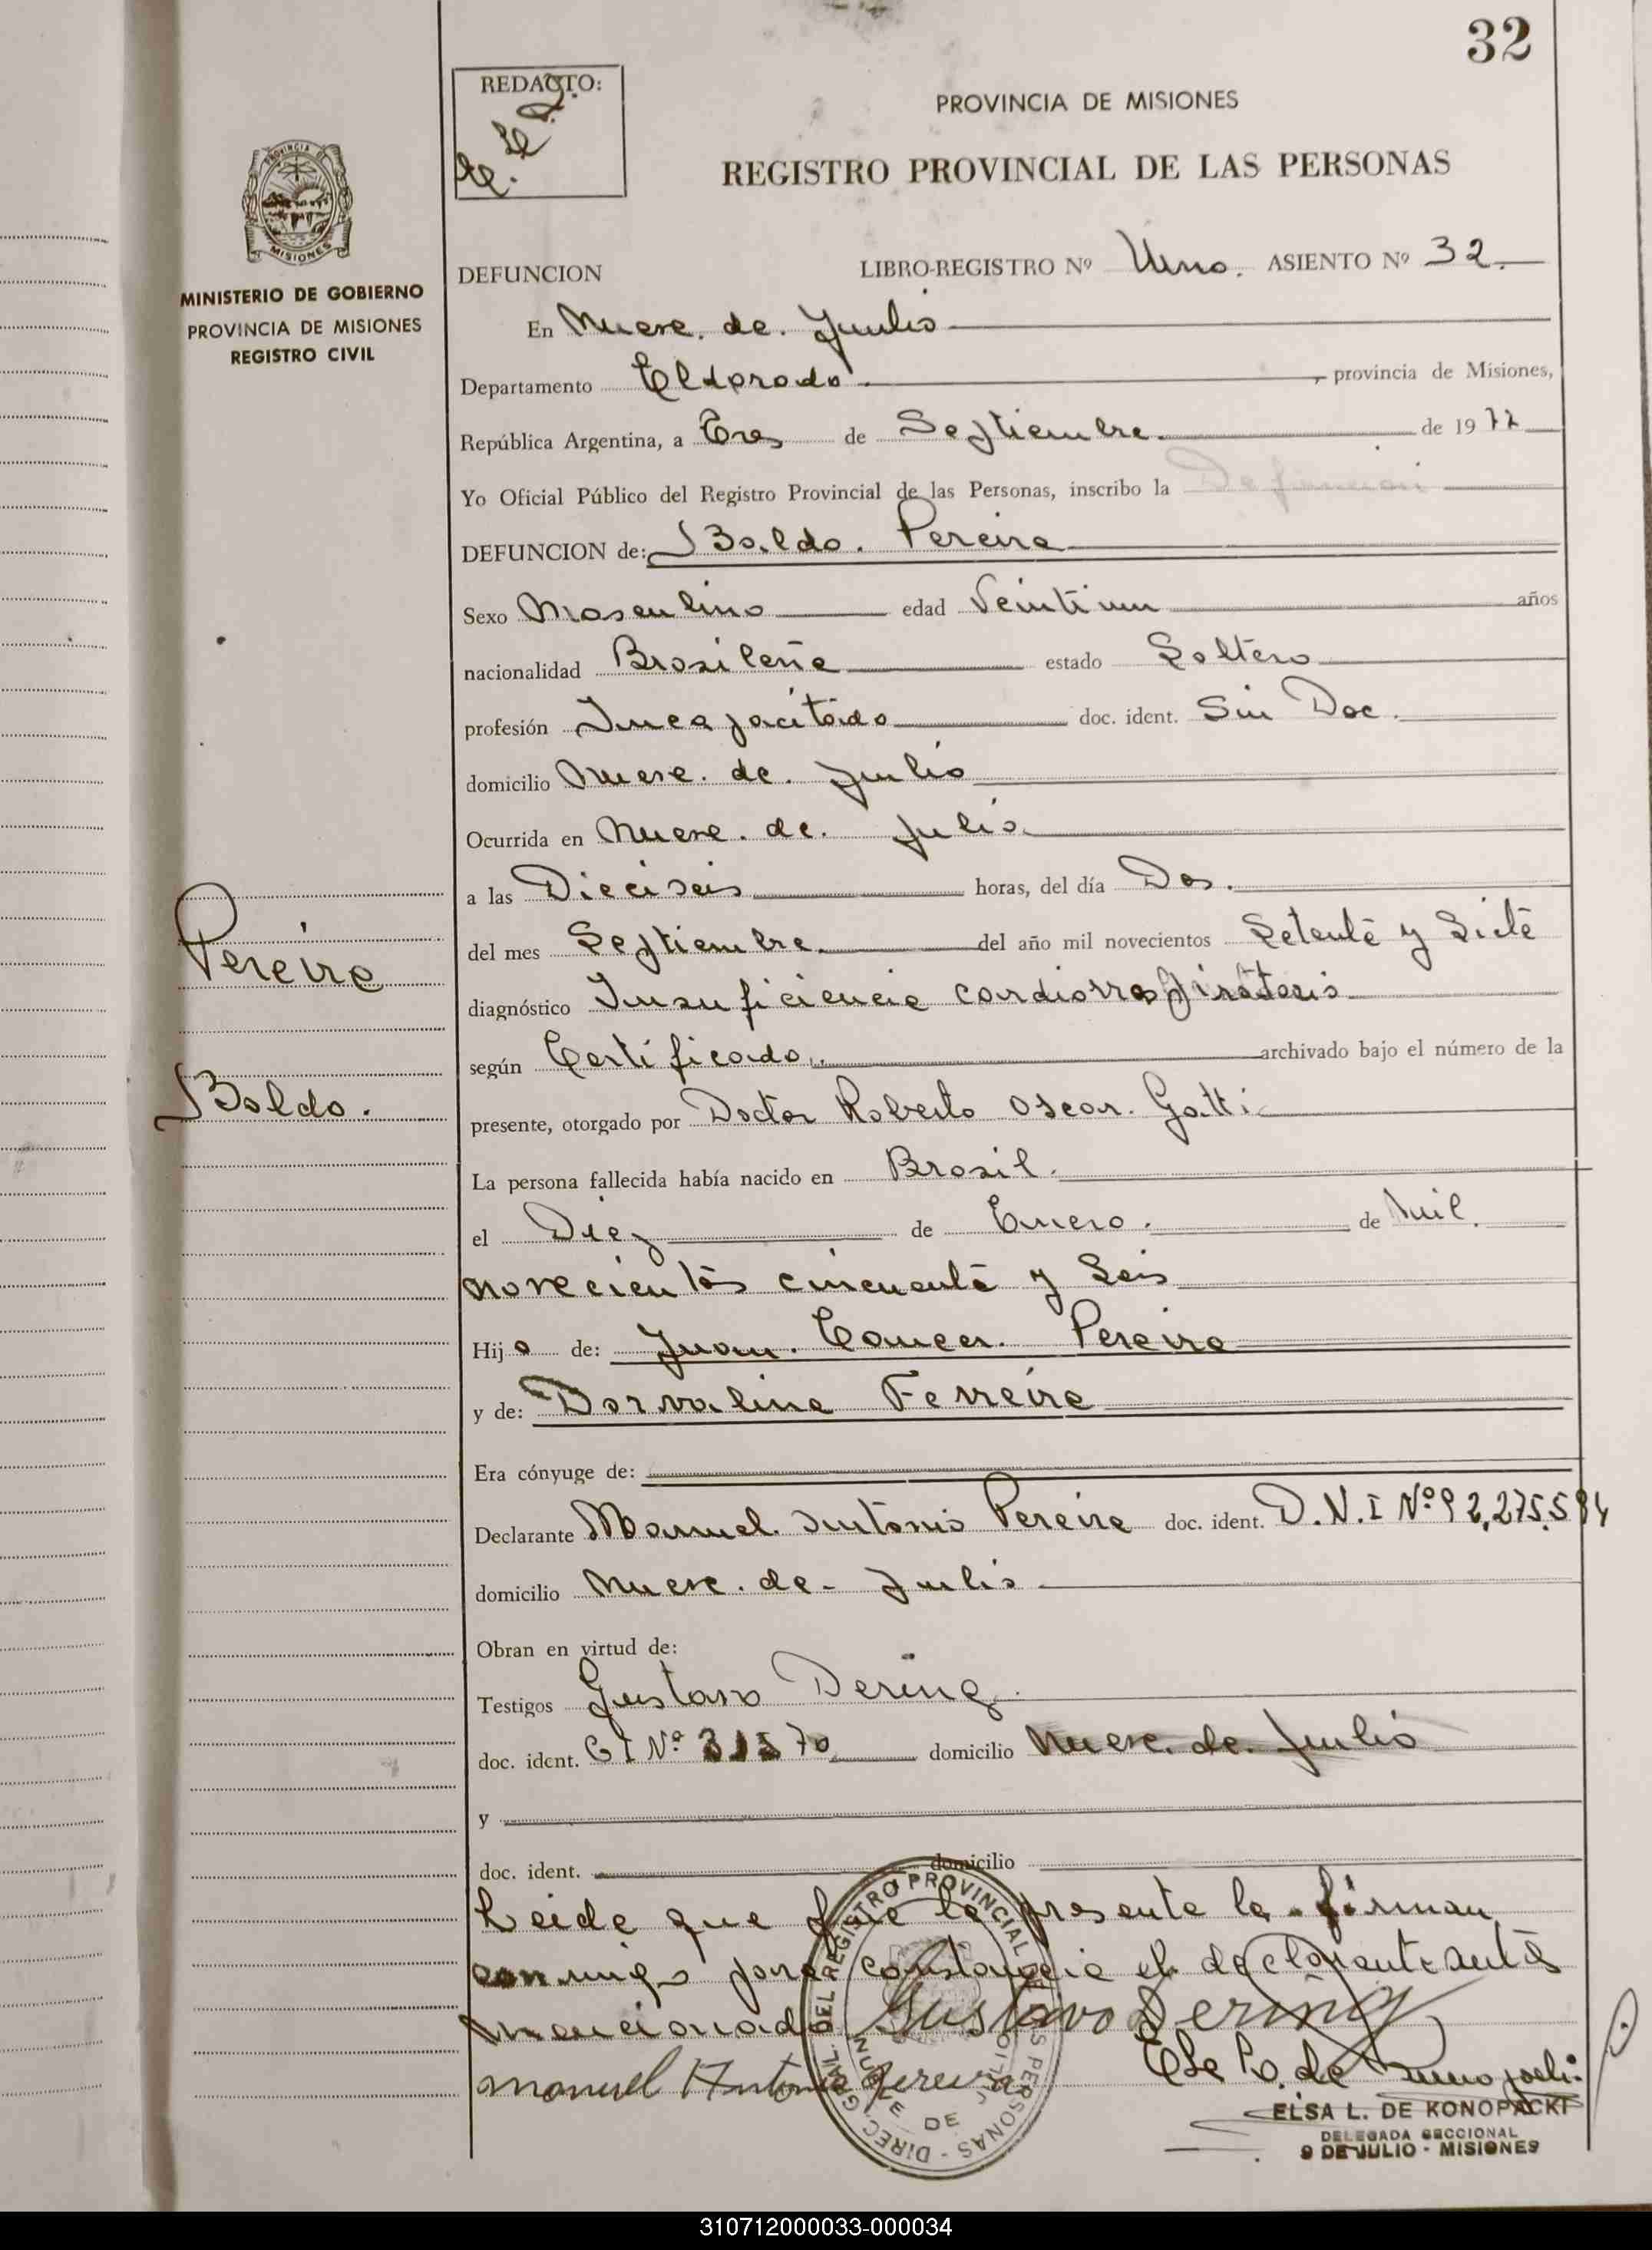 32
REDACTO:
PROVINCIA DE MISIONES
REGISTRO PROVINCIAL DE LAS PERSONAS
MINISTERIO DE GOBIERNO
PROVINCIA DE MISIONES
REGISTRO CIVIL
DEFUNCION LIBRO-REGISTRO Nº Uno. ASIENTO Nº 32.
En Nueve de Julio
Departamento Eldorado provincia de Misiones,
República Argentina, a Tres de Septiembre de 1977
Yo Oficial Público del Registro Provincial de las Personas, inscribo la Defunción
DEFUNCION de: Baldo. Pereira
Sexo Masculino edad Veintiun años
nacionalidad Brasileña estado Soltero
profesión Incapacitado doc. ident. Sin Doc.
domicilio Nueve. de. Julio
Ocurrida en Nueve. de. Julio
a las Dieciseis horas, del día Dos.
del mes Septiembre. del año mil novecientos Setenta y Siete
diagnóstico Insuficiencia cardiorrespiratoria
según Certificado. archivado bajo el número de la
presente, otorgado por Doctor Roberto Oscar. Gatti
La persona fallecida había nacido en Brasil.
el Diez de Enero. de mil.
novecientos cincuenta y Seis
Hijo de: Juan. Cancer. Pereira
y de: Dorvalina Ferreira
Era cónyuge de:
Declarante Manuel Antonio Pereira doc. ident. D.N.I Nº 92,275.594
domicilio Nueve. de. Julio
Obran en virtud de:
Testigos Gustavo Dering
doc. ident. C I Nº domicilio Nueve. de. Julio
y
doc. ident. domicilio
Leida que fue la presente la firman
conmigo para constancia el declarante antes
mencionado Gustavo Dering
Manuel Antonio Pereira
ELSA L. DE KONOPACKI
DELEGADA SECCIONAL
9 DE JULIO - MISIONES
Pereira
Baldo.
310712000033-000034